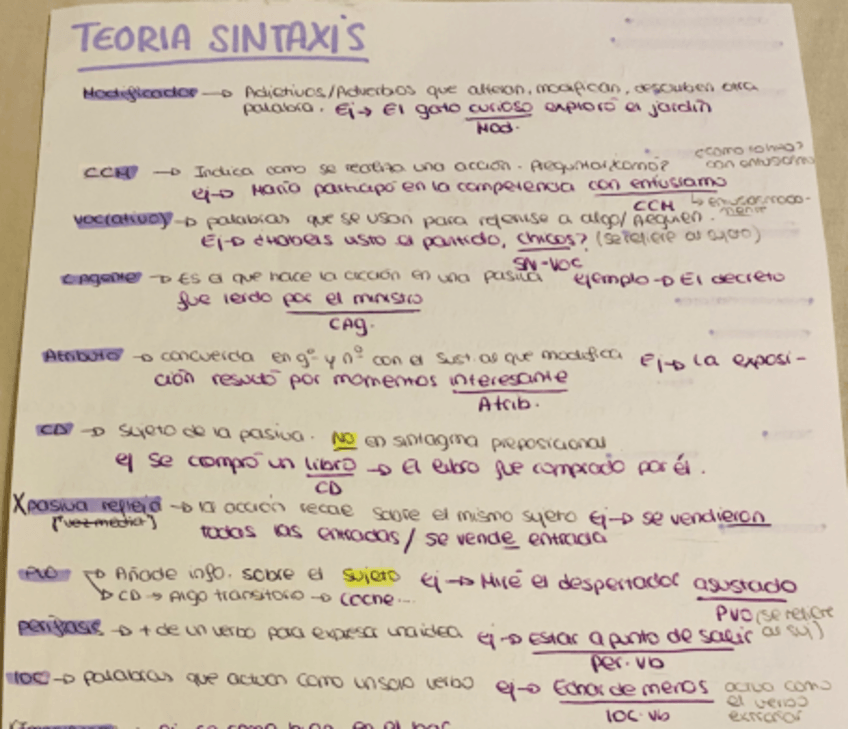 TEORIA SINTAXIS
Modificador → Adjetivos/Adverbios que alteran, modifican, describen otra
palabra. Ej → El gato curioso exploró el jardín
Mod.
¿como lo hizo?
CCM → Indica como se realiza una acción. Preguntar ¿como? con entusiasmo
ej → Mario participó en la competencia con entusiasmo
CCM ↳ entusiasmada-
mente
Vocativo → palabras que se usan para referirse a algo/alguien.
Ej → ¿habeis visto el partido, chicos? (se refiere al sujeto)
SN-VOC
C Agente → Es el que hace la acción en una pasiva ejemplo → El decreto
fue leído por el ministro
CAg.
Atributo → concuerda en gº y nº con el sust. al que modifica Ej → La exposi-
ción resultó por momentos interesante
Atrib.
CD → Sujeto de la pasiva. NO en sintagma preposicional
ej se compró un libro → El libro fue comprado por él.
CD
X pasiva refleja → la acción recae sobre el mismo sujeto Ej → se vendieron
("vez media") todas las entradas / se vende entrada
PVO → Añade info. sobre el sujeto ej → Miré el despertador asustado
↳ CD → Algo transitorio → coche... PVO (se refiere
al suj)
Perífrasis → + de un verbo para expresar una idea ej → Estar a punto de salir
per. vb
loc → palabras que actuan como un solo verbo ej → Echar de menos actua como
loc. vb el verbo
extrañar
ej se come bien en el bar